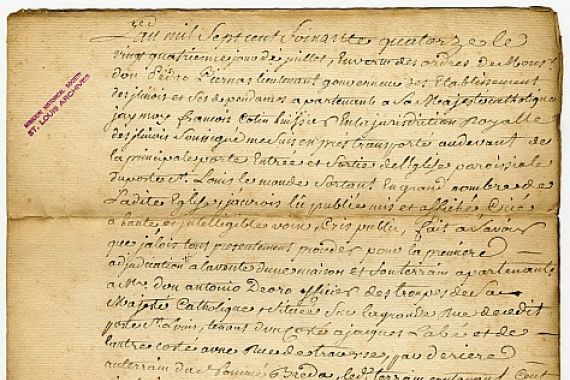 MISSOURI HISTORICAL SOCIETY
ST. LOUIS ARCHIVES
L'an mil Sept cent Soixante quatorze le
vingt quatrieme jour de juillet, En vertu des ordres de Mons.
don Pedro Piernas lieutenant gouverneur des Etablissement
des jlinois et Ses dependances apartenants a Sa Majesté Catholique
jay moy françois Cotin huissier En la jurisdiction Royalle
des jlinois Soussigné me Suis Exprès transporté audevant de
la principale porte Entrée et Sortie de l'Eglise paroissiale
du poste St. Louis le monde Sortant En grand nombre de
Ladite Eglise, jaurois lû publié mis et affiché Crié
a haute et jntelligible voix, Cris public, fait a Savoir
que jalois tout presentement proceder pour la premiere
adjudication a la vente dune maison et Souterrain apartenante
a Mr. don antonio Deoro officier des troupes de Sa
Majesté Catholique, Située Sur la grande Rue dudit
poste St. Louis, tenant dun Costé a jacques Labé et de
lautre costé a une Rue de traverse, par deriere
au terrain du nommé Bréda, ledt. terrain contenant Cent